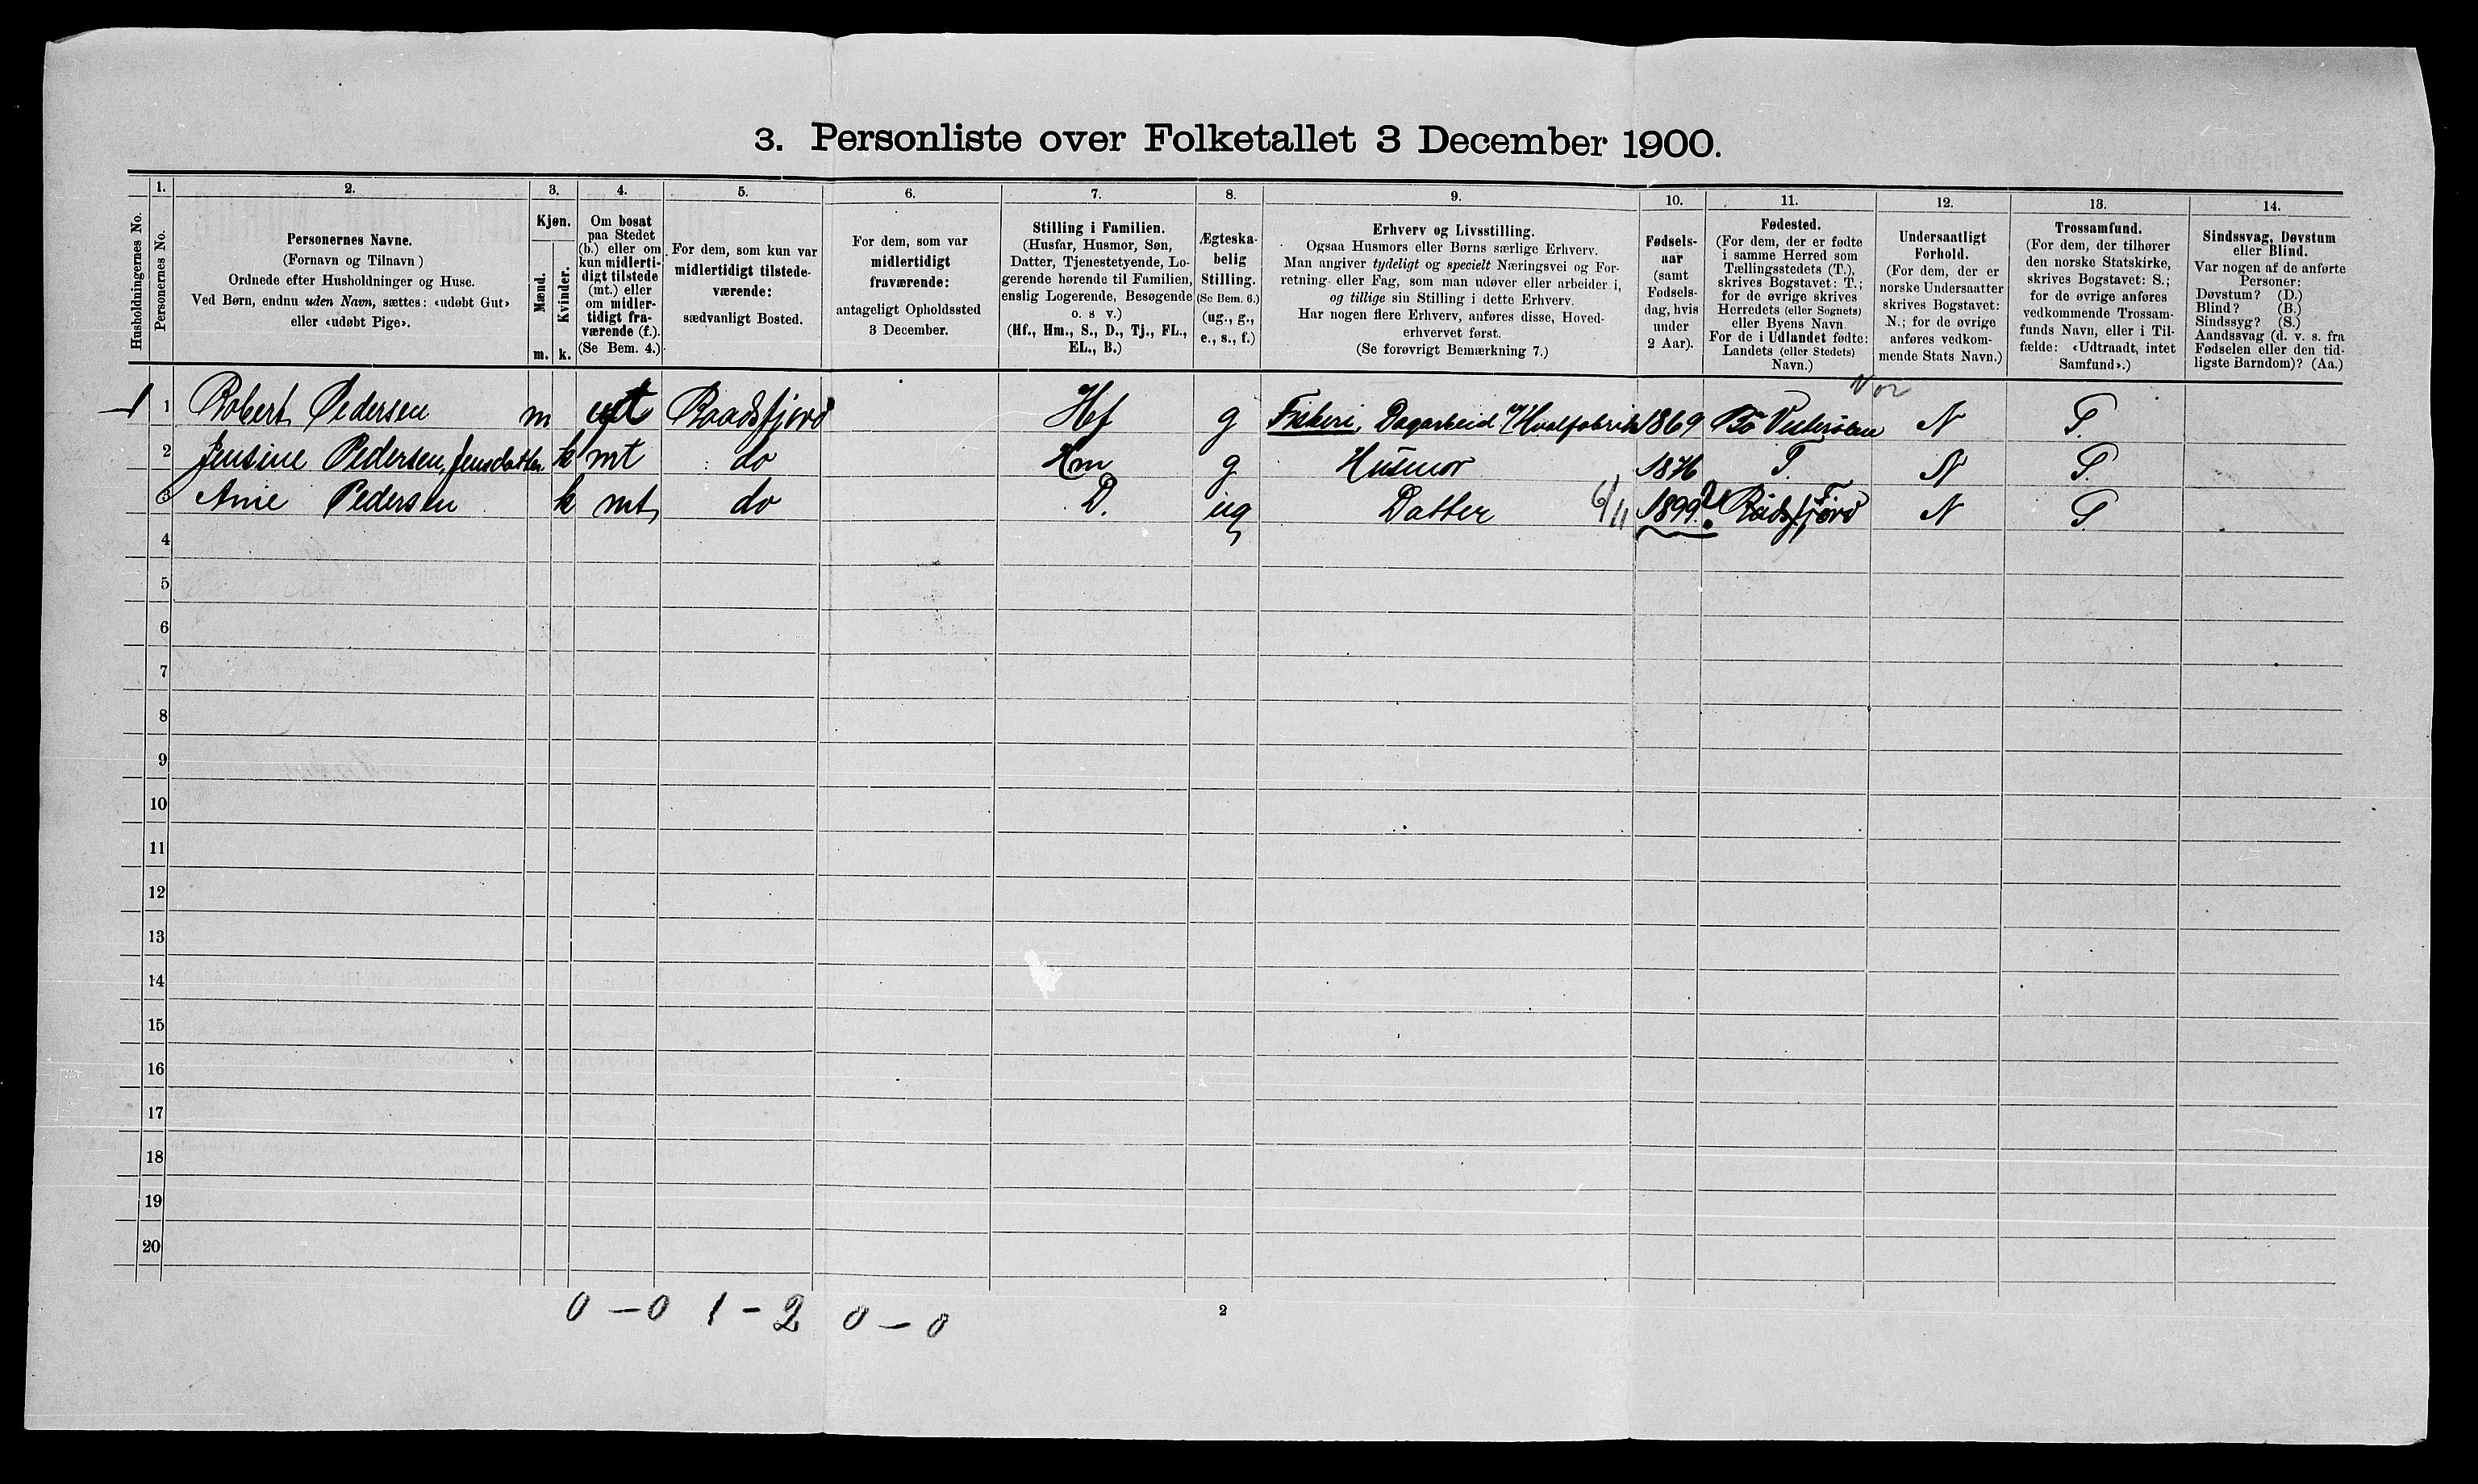 3. Personliste over Folketallet 3 December 1900.
Husholdningernes No.
1.
Personernes No.
2.
Personernes Navne.
(Fornavn og Tilnavn)
Ordnede efter Husholdninger og Huse.
Ved Børn, endnu uden Navn, sættes: «udøbt Gut»
eller «udøbt Pige».
3.
Kjøn.
Mænd.
Kvinder.
m. k.
4.
Om bosat
paa Stedet
(b.) eller om
kun midlerti-
digt tilstede
(mt.) eller
om midler-
tidigt fra-
værende (f.).
(Se Bem. 4.)
5.
For dem, som kun var
midlertidigt tilstede-
værende:
sædvanligt Bosted.
6.
For dem, som var
midlertidigt
fraværende:
antageligt Opholdssted
3 December.
7.
Stilling i Familien.
(Husfar, Husmor, Søn,
Datter, Tjenestetyende, Lo-
gerende hørende til Familien,
enslig Logerende, Besøgende
o. s v.)
(Hf., Hm., S., D., Tj., FL.,
EL., B.)
8.
Ægteska-
belig
Stilling.
(Se Bem. 6.)
(ug., g.,
e., s., f.)
9.
Erhverv og Livsstilling.
Ogsaa Husmors eller Børns særlige Erhverv.
Man angiver tydeligt og specielt Næringsvei og For-
retning eller Fag, som man udøver eller arbeider i,
og tillige sin Stilling i dette Erhverv.
Har nogen flere Erhverv, anføres disse, Hoved-
erhvervet først.
(Se forøvrigt Bemærkning 7.)
10.
Fødsels-
aar
(samt
Fødsels-
dag, hvis
under
2 Aar).
11.
Fødested.
(For dem, der er fødte
i samme Herred som
Tællingsstedets (T.),
skrives Bogstavet: T.;
for de øvrige skrives
Herredets (eller Sognets)
eller Byens Navn
For de i Udlandet fødte:
Landets (eller Stedets)
Navn.)
12.
Undersaatligt
Forhold.
(For dem, der er
norske Undersaatter
skrives Bogstavet:
N.; for de øvrige
anføres vedkom-
mende Stats Navn.)
13.
Trossamfund.
(For dem, der tilhører
den norske Statskirke,
skrives Bogstavet: S.;
for de øvrige anføres
vedkommende Trossam-
funds Navn, eller i Til-
fælde: «Udtraadt, intet
Samfund».)
14.
Sindssvag, Døvstum
eller Blind.
Var nogen af de anførte
Personer:
Døvstum? (D.)
Blind? (B.)
Sindssyg? (S.)
Aandssvag (d. v. s. fra
Fødselen eller den tid-
ligste Barndom)? (Aa.)
Nor
1 1 Robert Pedersen m mt Raadsfjord Hf g Fiskeri, Dagarbeid Hvalfabrik 1869 Bö Vesterålen N S.
2 Jensine Pedersen, Jensdatter k mt do Hm g Husmor 1876 T. N S.
3 Ane Pedersen k mt do D. ug Datter 6/11 1899? Rådsfjord T N S
4
5
6
7
8
9
10
11
12
13
14
15
16
17
18
19
20
0 – 0 1 – 2 0 – 0
2